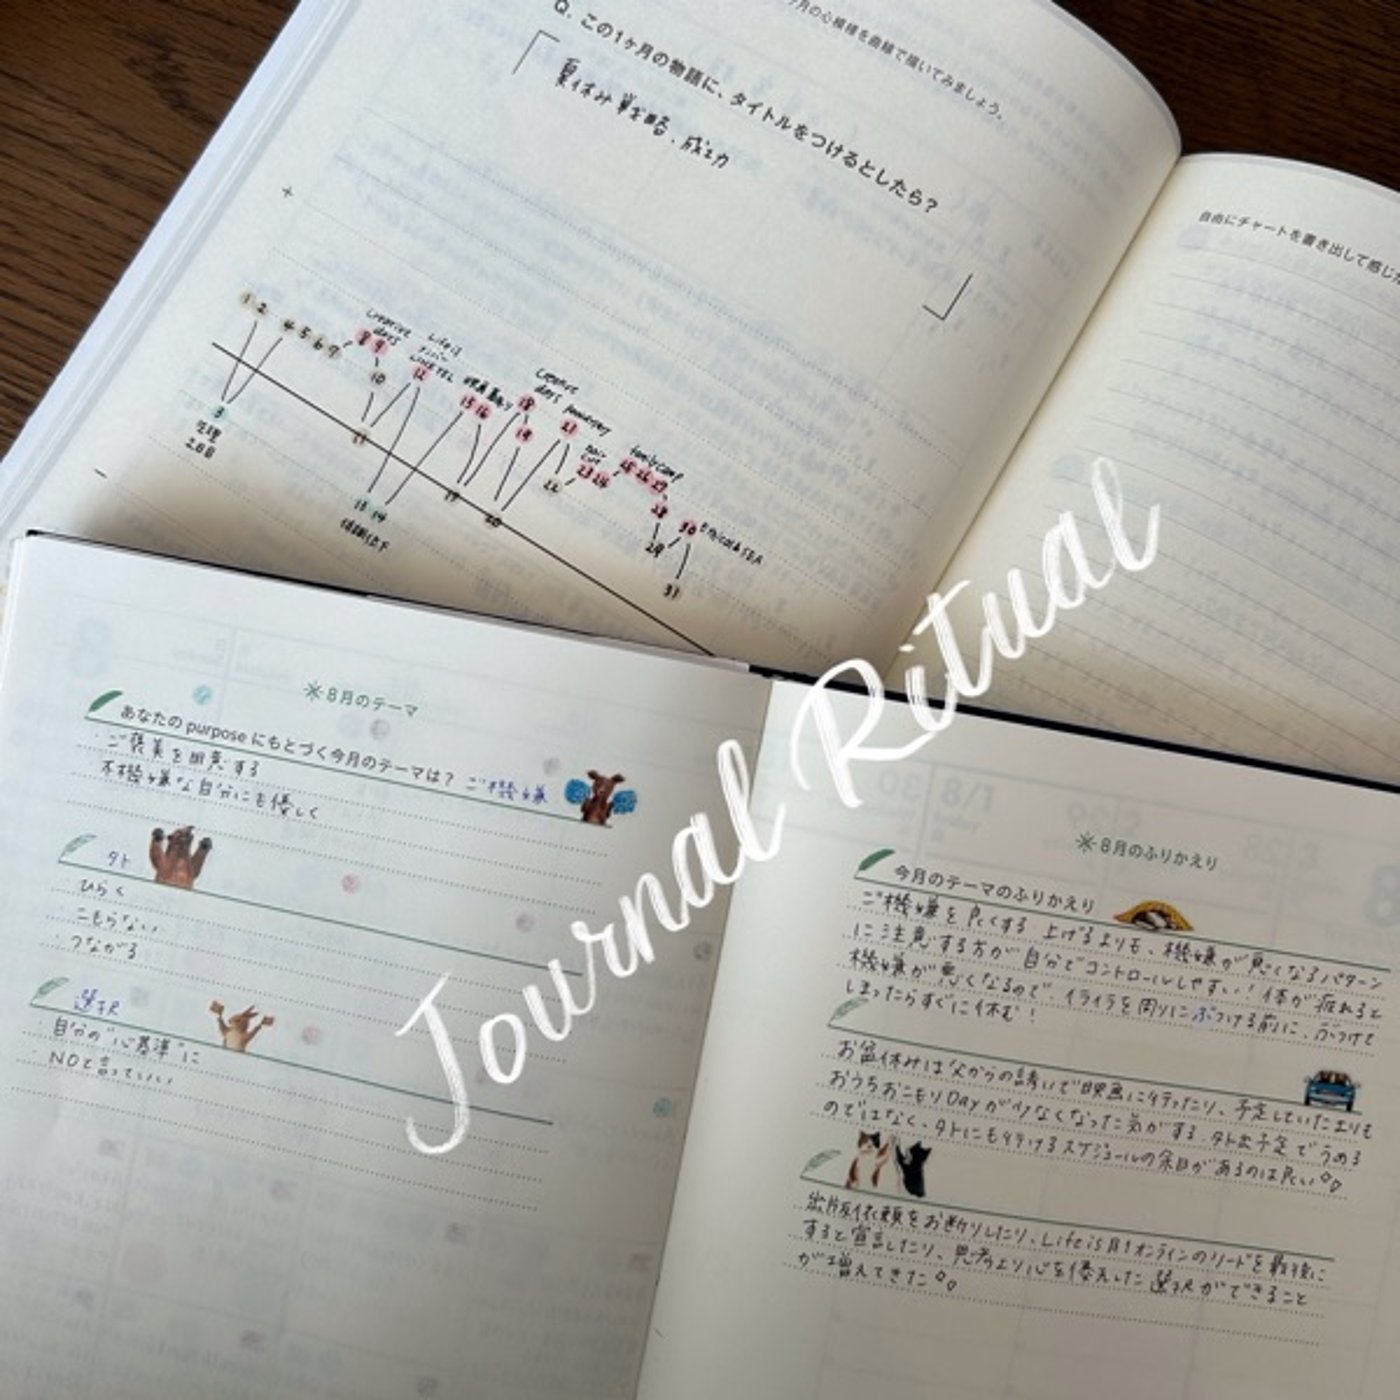 月の心模様を曲線で描いてみましょう。
Q. この1ヶ月の物語に、タイトルをつけるとしたら?
夏休み戦略、成功
自由にチャートを書き出して感じた
+
1 2 4 5 6 7 8 9 10 12 15 16 18 19 21 22 23 24 25 26 27 28 29 30 31
creative days
Life is
creative days
family camp
3
生理
2日目
11
13 14
体調低下
17
20
−
Journal Ritual
※8月のテーマ
あなたの purpose にもとづく今月のテーマは? ご機嫌
・ご褒美を用意する
不機嫌な自分にも優しく
外
・ひらく
・こもらない
・つながる
選択
・自分の“心基準”に
・NOと言っていい
※8月のふりかえり
今月のテーマのふりかえり
ご機嫌を良くする 上げるよりも、機嫌が悪くなるパターン
に注意する方が自分でコントロールしやすい! 体が疲れると
機嫌が悪くなるので イライラを周りにぶつける前に、ぶつけて
しまったらすぐに休む!
お盆休みは父からの誘いで映画に行ったり、予定していたよりも
おうちおこもりDayが少なくなった気がする 外出予定でうめる
のではなく、外にも行けるスケジュールの余白があるのは良い
出版依頼をお断りしたり、Life is オンラインのリードを最後に
すると宣言したり、思考より心を優先した選択ができること
が増えてきた